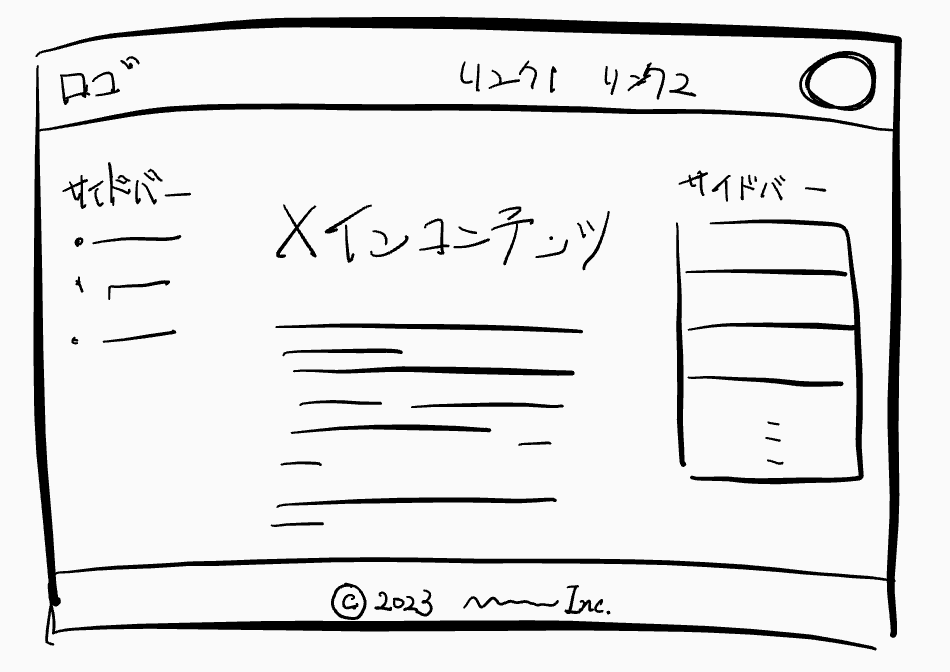 ロゴ リンク1 リンク2
サイドバー
メインコンテンツ
サイドバー
© 2023 Inc.